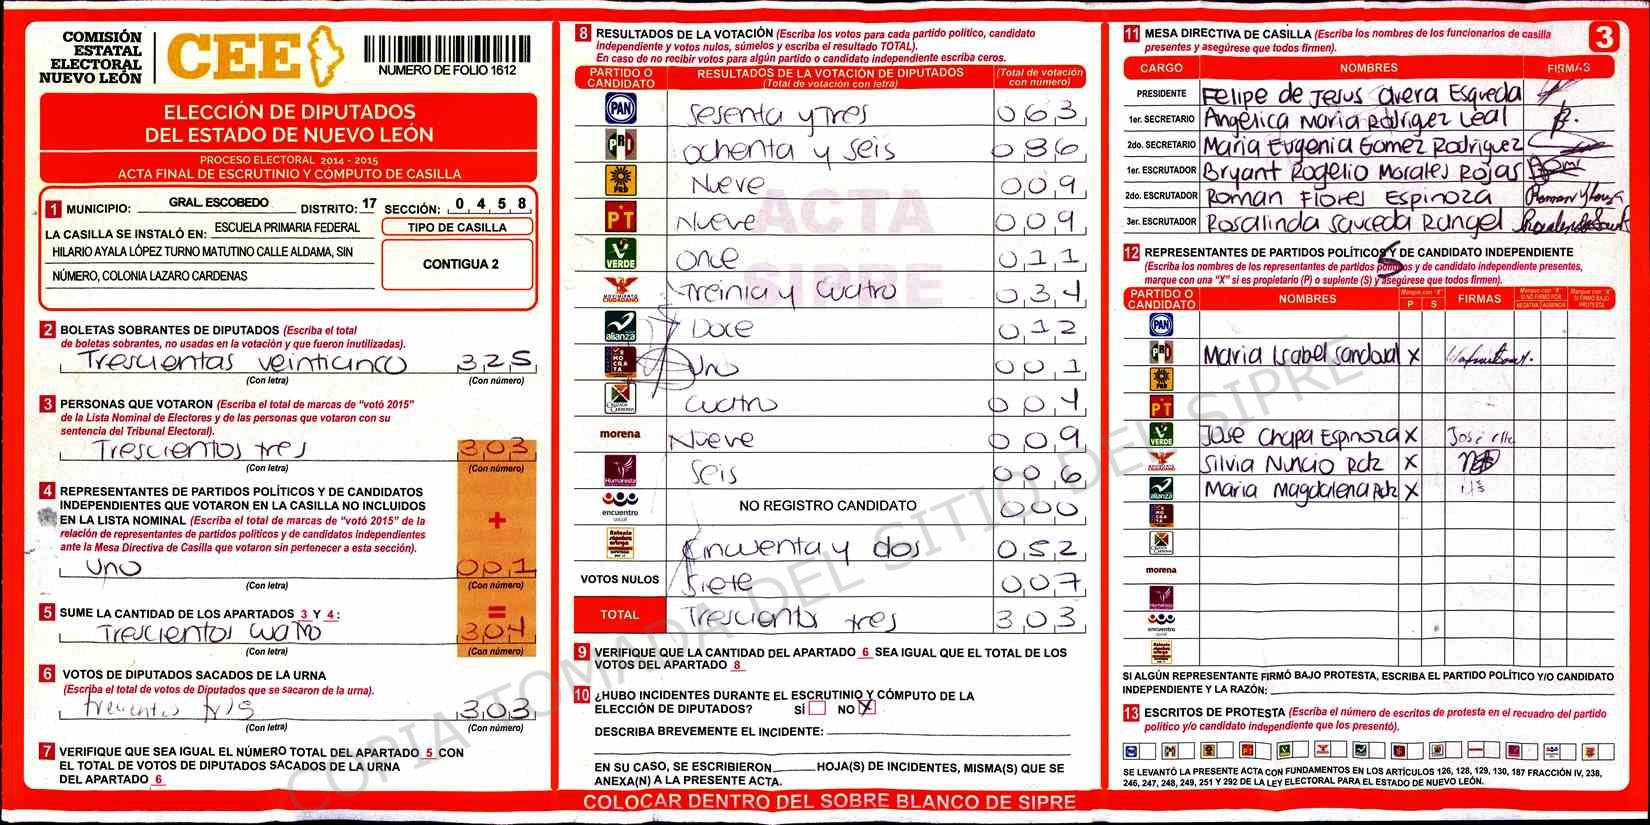 COMISIÓN
ESTATAL
ELECTORAL
NUEVO LEÓN
CEE
NUMERO DE FOLIO 1612
ELECCIÓN DE DIPUTADOS
DEL ESTADO DE NUEVO LEÓN
PROCESO ELECTORAL 2014 - 2015
ACTA FINAL DE ESCRUTINIO Y CÓMPUTO DE CASILLA
1 MUNICIPIO: GRAL. ESCOBEDO DISTRITO: 17 SECCIÓN: 0 4 5 8
LA CASILLA SE INSTALÓ EN: ESCUELA PRIMARIA FEDERAL
HILARIO AYALA LÓPEZ TURNO MATUTINO CALLE ALDAMA, SIN
NÚMERO, COLONIA LAZARO CARDENAS
TIPO DE CASILLA
CONTIGUA 2
2 BOLETAS SOBRANTES DE DIPUTADOS (Escriba el total
de boletas sobrantes, no usadas en la votación y que fueron inutilizadas).
Trescientas veinticinco 325
(Con letra) (Con número)
3 PERSONAS QUE VOTARON (Escriba el total de marcas de “votó 2015”
de la Lista Nominal de Electores y de las personas que votaron con su
sentencia del Tribunal Electoral).
Trescientos tres 303
(Con letra) (Con número)
4 REPRESENTANTES DE PARTIDOS POLÍTICOS Y DE CANDIDATOS
INDEPENDIENTES QUE VOTARON EN LA CASILLA NO INCLUIDOS
EN LA LISTA NOMINAL (Escriba el total de marcas de “votó 2015” de la
relación de representantes de partidos políticos y de candidatos independientes
ante la Mesa Directiva de Casilla que votaron sin pertenecer a esta sección).
+
Uno 001
(Con letra) (Con número)
5 SUME LA CANTIDAD DE LOS APARTADOS 3 Y 4: =
Trescientos cuatro 304
(Con letra) (Con número)
6 VOTOS DE DIPUTADOS SACADOS DE LA URNA
(Escriba el total de votos de Diputados que se sacaron de la urna).
tres 303
(Con letra) (Con número)
7 VERIFIQUE QUE SEA IGUAL EL NÚMERO TOTAL DEL APARTADO 5 CON
EL TOTAL DE VOTOS DE DIPUTADOS SACADOS DE LA URNA
DEL APARTADO 6
8 RESULTADOS DE LA VOTACIÓN (Escriba los votos para cada partido político, candidato
independiente y votos nulos, súmelos y escriba el resultado TOTAL).
En caso de no recibir votos para algún partido o candidato independiente escriba ceros.
PARTIDO O CANDIDATO RESULTADOS DE LA VOTACIÓN DE DIPUTADOS (Total de votación con letra) (Total de votación con número)
PAN Sesenta y Tres 063
PRD ochenta y seis 086
PRD Nueve 009
PT Nueve 009
VERDE once 011
MOVIMIENTO CIUDADANO Treinta y cuatro 034
alianza Doce 012
DEMOCRATA Uno 001
CRUZADA CIUDADANA cuatro 004
morena Nueve 009
Humanista Seis 006
encuentro social NO REGISTRO CANDIDATO 000
Cincuenta y dos 052
VOTOS NULOS Siete 007
TOTAL tres 303
ACTA
SIPRE
COPIA TOMADA DEL SITIO DEL SIPRE
9 VERIFIQUE QUE LA CANTIDAD DEL APARTADO 6 SEA IGUAL QUE EL TOTAL DE LOS
VOTOS DEL APARTADO 8
10 ¿HUBO INCIDENTES DURANTE EL ESCRUTINIO Y CÓMPUTO DE LA
ELECCIÓN DE DIPUTADOS? SÍ NO X
DESCRIBA BREVEMENTE EL INCIDENTE:
EN SU CASO, SE ESCRIBIERON HOJA(S) DE INCIDENTES, MISMA(S) QUE SE
ANEXA(N) A LA PRESENTE ACTA.
COLOCAR DENTRO DEL SOBRE BLANCO DE SIPRE
11 MESA DIRECTIVA DE CASILLA (Escriba los nombres de los funcionarios de casilla
presentes y asegúrese que todos firmen).
3
CARGO NOMBRES FIRMAS
PRESIDENTE Felipe de Jesus Overa Esqueda
1er. SECRETARIO Angélica Maria Rodrigez Leal
2do. SECRETARIO Maria Eugenia Gomez Rodriguez
1er. ESCRUTADOR Bryant Rogelio Morales Rojas
2do. ESCRUTADOR Roman Flores Espinoza
3er. ESCRUTADOR Rosalinda Sauceda Rangel
12 REPRESENTANTES DE PARTIDOS POLÍTICOS DE CANDIDATO INDEPENDIENTE
(Escriba los nombres de los representantes de partidos políticos y de candidato independiente presentes,
marque con una “X” si es propietario (P) o suplente (S) y asegúrese que todos firmen).
PARTIDO O CANDIDATO NOMBRES Marque con “X” P S FIRMAS Marque con “X” SI NO FIRMÓ POR: NEGATIVA AUSENCIA Marque con “X” SI FIRMÓ BAJO PROTESTA
PAN
PRD Maria Isabel Sandoval X
PRD
PT
VERDE Jose Chapa Espinoza X José
Silvia Nuncio Rdz X
alianza Maria Magdalena Rdz X
morena
encuentro social
SI ALGÚN REPRESENTANTE FIRMÓ BAJO PROTESTA, ESCRIBA EL PARTIDO POLÍTICO Y/O CANDIDATO
INDEPENDIENTE Y LA RAZÓN:
13 ESCRITOS DE PROTESTA (Escriba el número de escritos de protesta en el recuadro del partido
político y/o candidato independiente que los presentó).
SE LEVANTÓ LA PRESENTE ACTA CON FUNDAMENTOS EN LOS ARTÍCULOS 126, 128, 129, 130, 187 FRACCIÓN IV, 238,
246, 247, 248, 249, 251 Y 292 DE LA LEY ELECTORAL PARA EL ESTADO DE NUEVO LEÓN.